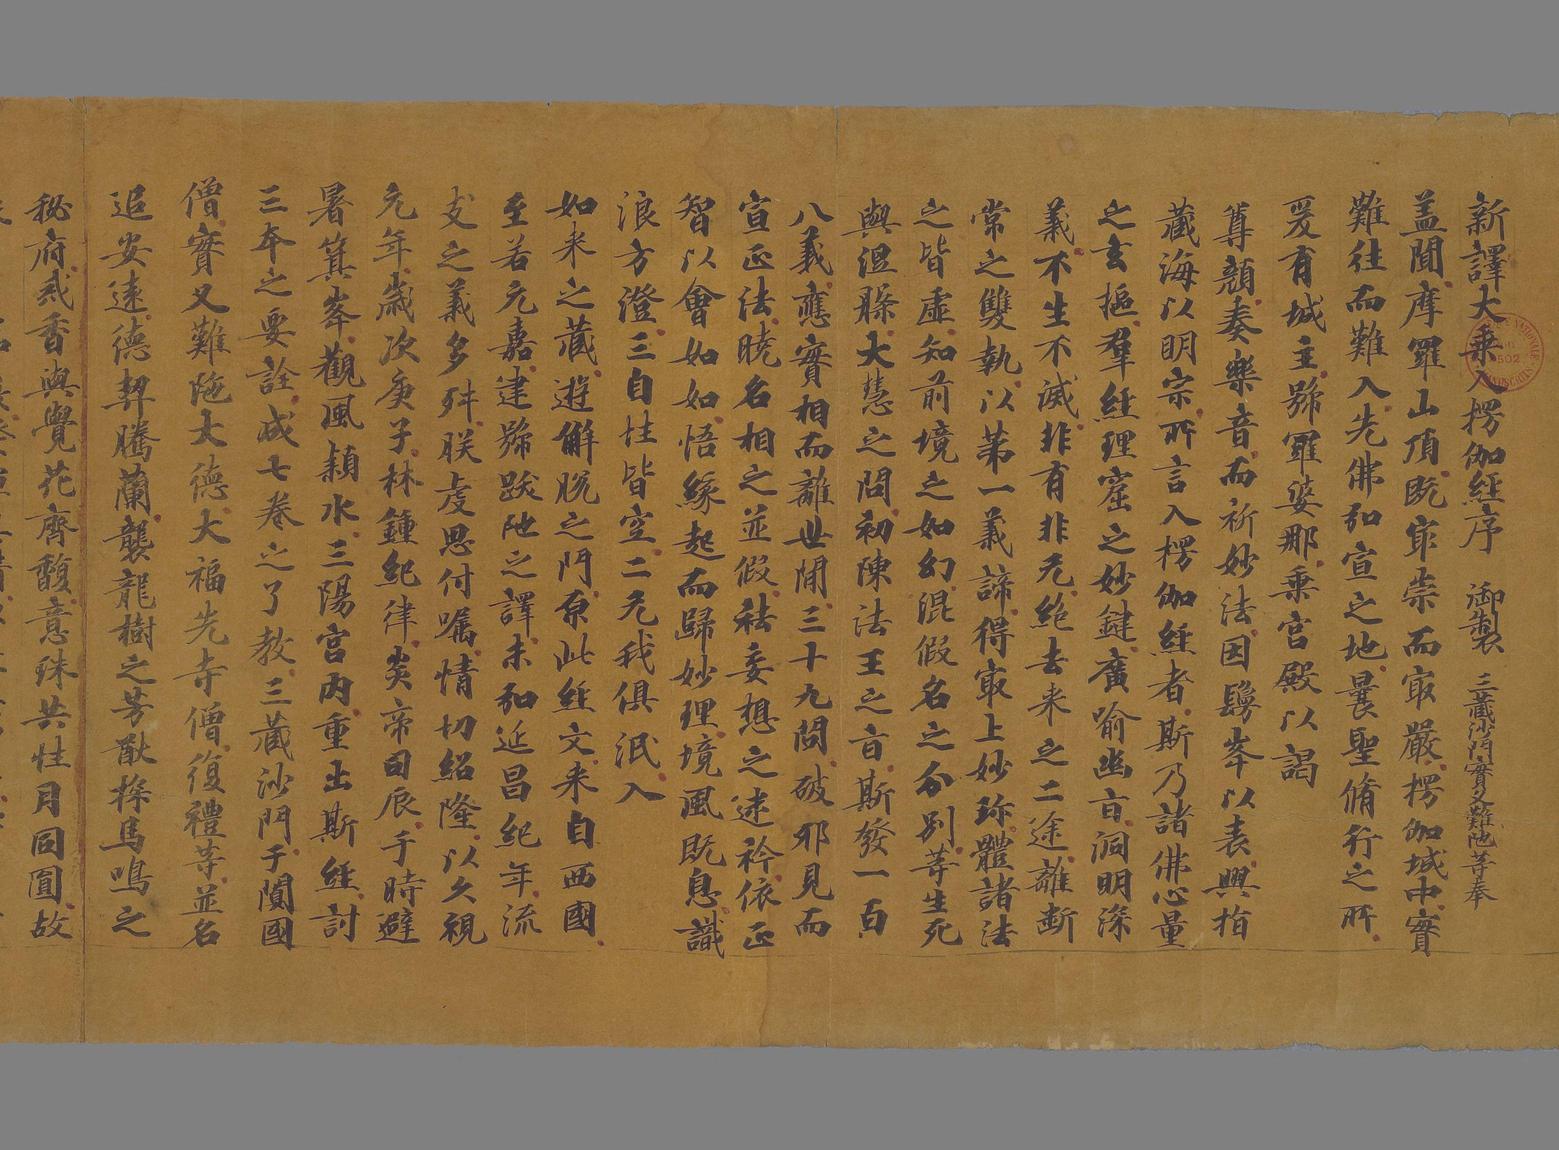 新譯大乘入楞伽經序 御製 三藏沙門實叉難陁等奉
盖聞摩羅山頂既㝡崇而㝡嚴楞伽城中實
難往而難入先佛弘宣之地曩聖脩行之所
爰有城主號羅婆那乘宮殿以謁
尊顏奏樂音而祈妙法因鬘峯以表興指
藏海以明宗所言入楞伽經者斯乃諸佛心量
之玄樞羣經理窟之妙鍵廣喻幽㫖洞明深
義不生不滅非有非无絶去来之二途離断
常之雙執以苐一義諦得㝡上妙珎體諸法
之皆虛知前境之如幻混假名之分別等生死
與涅槃大慧之問初陳法王之㫖斯發一百
八義應實相而離世閒三十九問破邪見而
宣正法曉名相之並假祛妄想之迷衿依正
智以會如如悟緣起而歸妙理境風既息識
浪方澄三自性皆空二无我俱泯入
如来之藏遊解脫之門原此經文来自西國
至若元嘉建號跋陁之譯未弘延昌紀年流
支之義多舛朕虔思付嘱情切紹隆以久視
元年歲次庚子林鍾紀律炎帝司辰于時避
暑箕峯觀風潁水三陽宮内重出斯經討
三夲之要詮成七卷之了教三藏沙門于闐國
僧實叉難陁大德大福先寺僧復禮等並名
追安遠德契騰蘭襲龍樹之芳猷探馬鳴之
秘府戒香與覺花齊馥意珠共性月同圓故